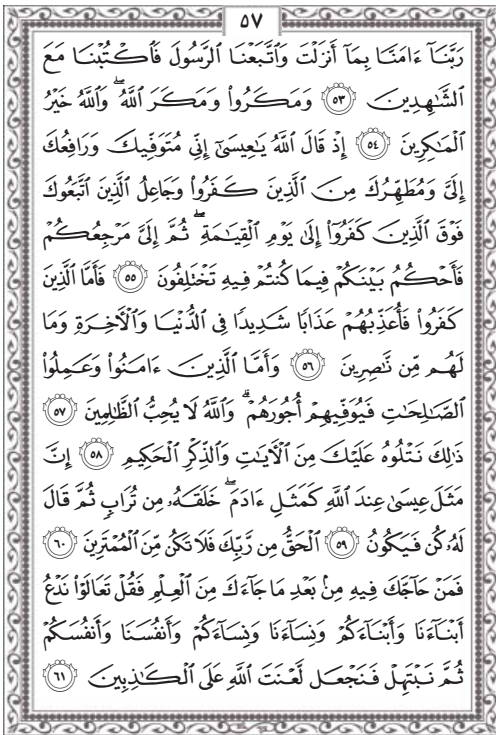 ٥٧
رَبَّنَآ ءَامَنَّا بِمَآ أَنزَلْتَ وَٱتَّبَعْنَا ٱلرَّسُولَ فَٱكْتُبْنَا مَعَ
ٱلشَّٰهِدِينَ ٥٣ وَمَكَرُوا۟ وَمَكَرَ ٱللَّهُ ۖ وَٱللَّهُ خَيْرُ
ٱلْمَٰكِرِينَ ٥٤ إِذْ قَالَ ٱللَّهُ يَٰعِيسَىٰٓ إِنِّى مُتَوَفِّيكَ وَرَافِعُكَ
إِلَىَّ وَمُطَهِّرُكَ مِنَ ٱلَّذِينَ كَفَرُوا۟ وَجَاعِلُ ٱلَّذِينَ ٱتَّبَعُوكَ
فَوْقَ ٱلَّذِينَ كَفَرُوٓا۟ إِلَىٰ يَوْمِ ٱلْقِيَٰمَةِ ۖ ثُمَّ إِلَىَّ مَرْجِعُكُمْ
فَأَحْكُمُ بَيْنَكُمْ فِيمَا كُنتُمْ فِيهِ تَخْتَلِفُونَ ٥٥ فَأَمَّا ٱلَّذِينَ
كَفَرُوا۟ فَأُعَذِّبُهُمْ عَذَابًا شَدِيدًا فِى ٱلدُّنْيَا وَٱلْءَاخِرَةِ وَمَا
لَهُم مِّن نَّٰصِرِينَ ٥٦ وَأَمَّا ٱلَّذِينَ ءَامَنُوا۟ وَعَمِلُوا۟
ٱلصَّٰلِحَٰتِ فَيُوَفِّيهِمْ أُجُورَهُمْ ۗ وَٱللَّهُ لَا يُحِبُّ ٱلظَّٰلِمِينَ ٥٧
ذَٰلِكَ نَتْلُوهُ عَلَيْكَ مِنَ ٱلْءَايَٰتِ وَٱلذِّكْرِ ٱلْحَكِيمِ ٥٨ إِنَّ
مَثَلَ عِيسَىٰ عِندَ ٱللَّهِ كَمَثَلِ ءَادَمَ ۖ خَلَقَهُۥ مِن تُرَابٍ ثُمَّ قَالَ
لَهُۥ كُن فَيَكُونُ ٥٩ ٱلْحَقُّ مِن رَّبِّكَ فَلَا تَكُن مِّنَ ٱلْمُمْتَرِينَ ٦٠
فَمَنْ حَآجَّكَ فِيهِ مِنۢ بَعْدِ مَا جَآءَكَ مِنَ ٱلْعِلْمِ فَقُلْ تَعَالَوْا۟ نَدْعُ
أَبْنَآءَنَا وَأَبْنَآءَكُمْ وَنِسَآءَنَا وَنِسَآءَكُمْ وَأَنفُسَنَا وَأَنفُسَكُمْ
ثُمَّ نَبْتَهِلْ فَنَجْعَل لَّعْنَتَ ٱللَّهِ عَلَى ٱلْكَٰذِبِينَ ٦١